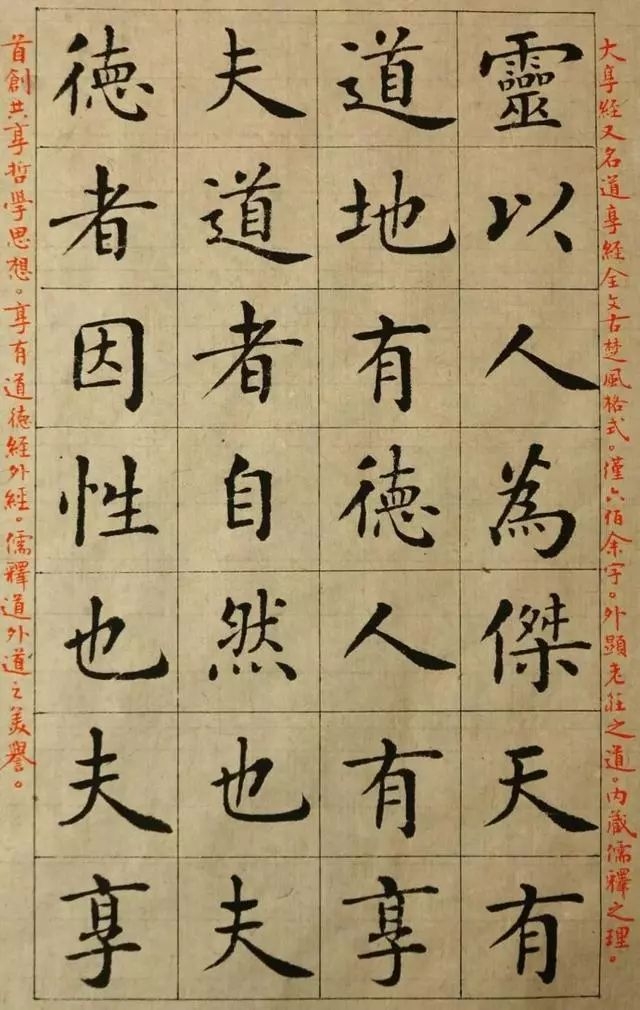 大享经又名道享经全文古楚风格式。僅六佰余字。外顕老莊之道。内藏儒釋之理。
靈以人為傑天有
道地有徳人有享
夫道者自然也夫
徳者因性也夫享
首創共享哲學思想。享有道徳経外經。儒釋道外道之美譽。